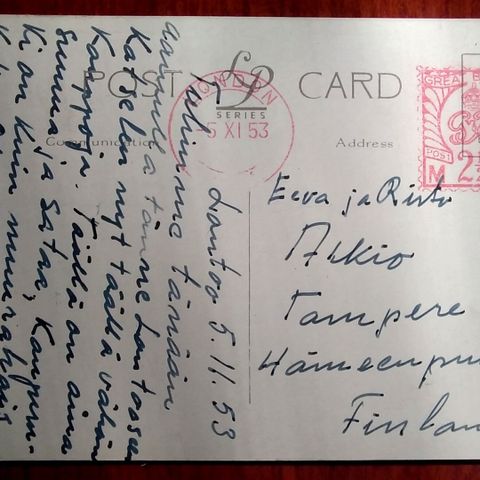 POST CARD
SP
SERIES
Communication
Address
LONDON
5 XI 53
GREAT B
POST
M 2
Lontoo 5.11.53
Tulimme tänään
aamulla tänne Lontooseen
Katselen nyt täällä vähän
Kauppoja. Täällä on aina
sumua ja sataa, Kaupun-
ki on kuin muurahais
Eeva ja Risto
Alkio
Tampere
Hämeenpu
Finlan